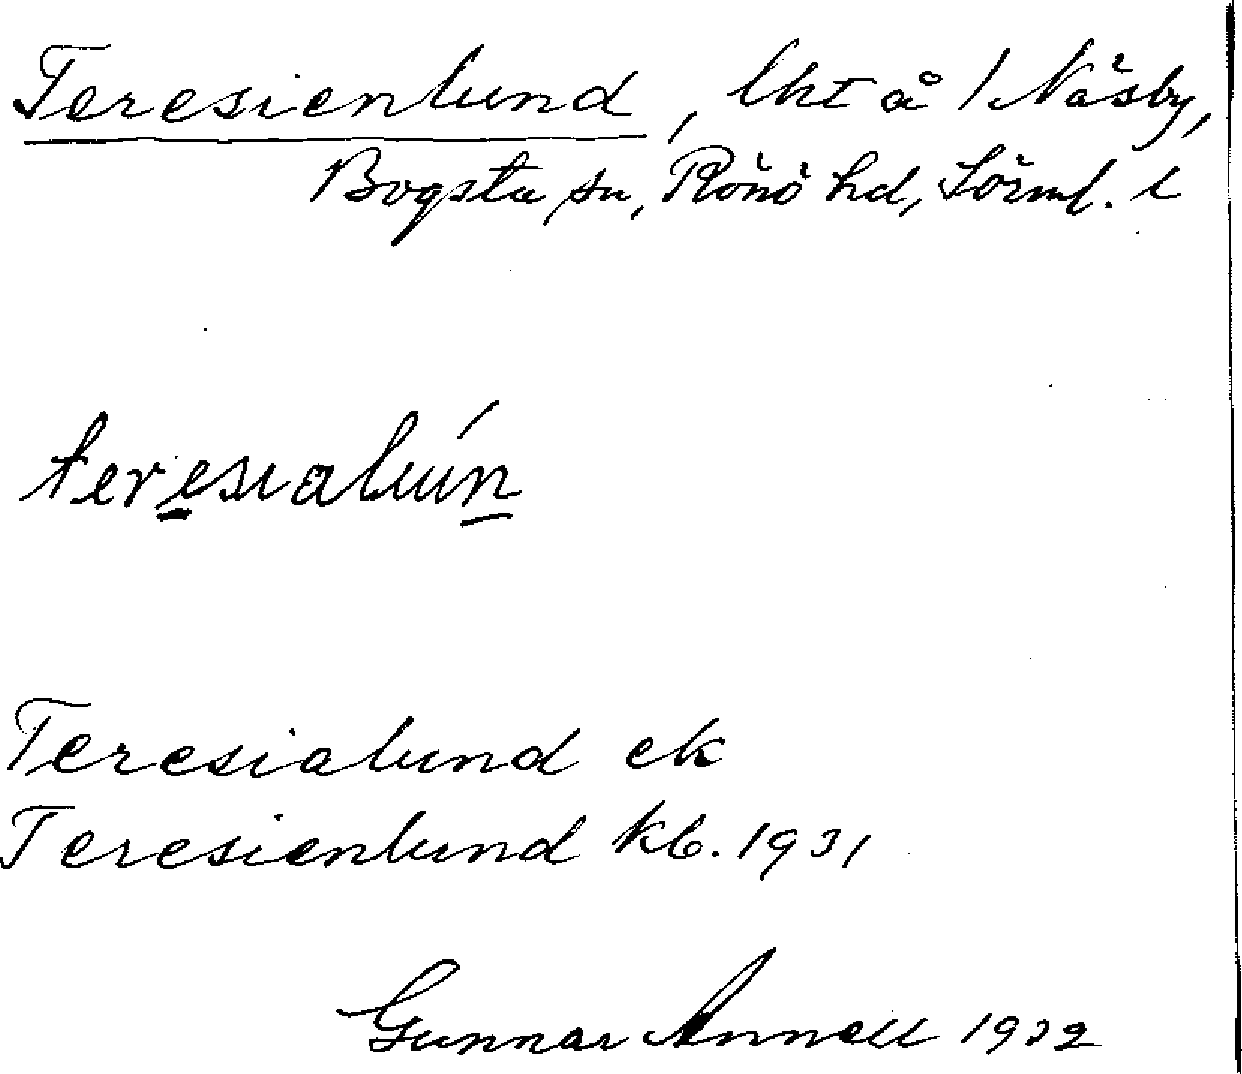 Teresienlund, lht å 1 Näsby,
Bogsta sn, Rönö hd, Sörml. l
teresialún
Teresialund ek
Teresienlund kb. 1931
Gunnar Annell 1932